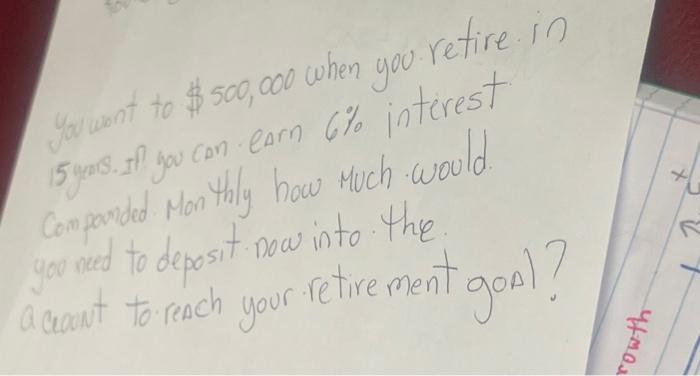 You want to $500,000 when you retire in
15 years. If you can earn 6% interest
Compounded Monthly how Much would
you need to deposit now into the
account to reach your retirement goal?
rowth